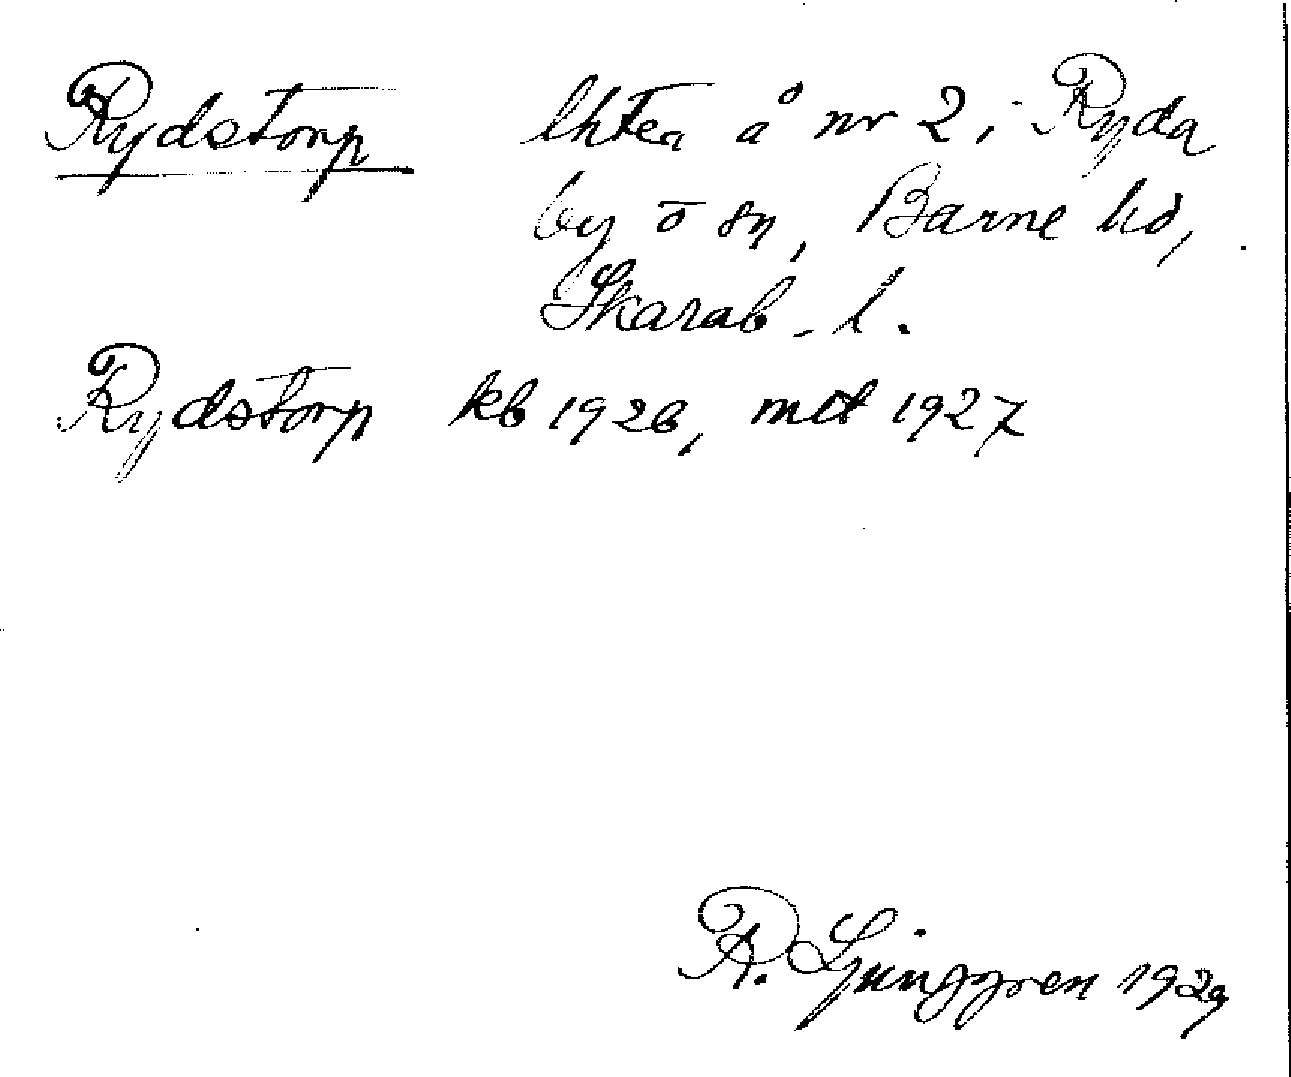 Rydstorp lhter å nr 2 i Ryda
by o sn, Barne hd,
Skarab. l.
Rydstorp kb 1926, mtl 1927
R. Ljunggren 1929